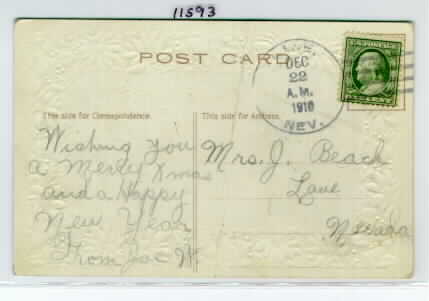 11593
POST CARD
DEC
22
A.M.
1910
NEV.
This side for Correspondence.
This side for Address.
Wishing you
a Merry Xmas
and a Happy
New Year
From
Mrs. J. Beach
Lane
Nevada